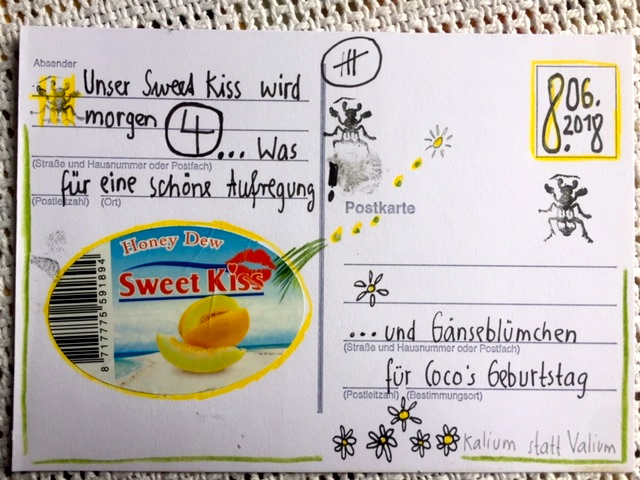 Absender
Unser Sweet Kiss wird
morgen 4 ... Was
(Straße und Hausnummer oder Postfach)
für eine schöne Aufregung!
(Postleitzahl) (Ort)
Honey Dew
Sweet Kiss
8 717775 591894
08.06.
2018
Postkarte
... und Gänseblümchen
(Straße und Hausnummer oder Postfach)
für Coco's Geburtstag
(Postleitzahl) (Bestimmungsort)
Kalium statt Valium